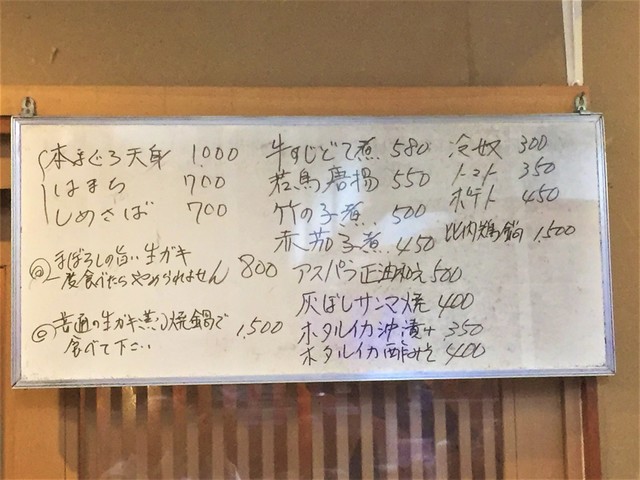 本まぐろ天身 1000
はまち 700
しめさば 700
@まぼろしの旨い生ガキ
一度食べたらやめられません 800
@普通の生ガキ蒸し焼鍋で 1,500
食べて下さい
牛すじどて煮 580
若鳥唐揚 550
竹の子煮 500
赤茄子煮 450
アスパラ正油和え 500
灰ぼしサンマ焼 400
ホタルイカ沖漬け 350
ホタルイカ酢みそ 400
冷奴 300
トマト 350
ポテト 450
比内鶏鍋 1,500